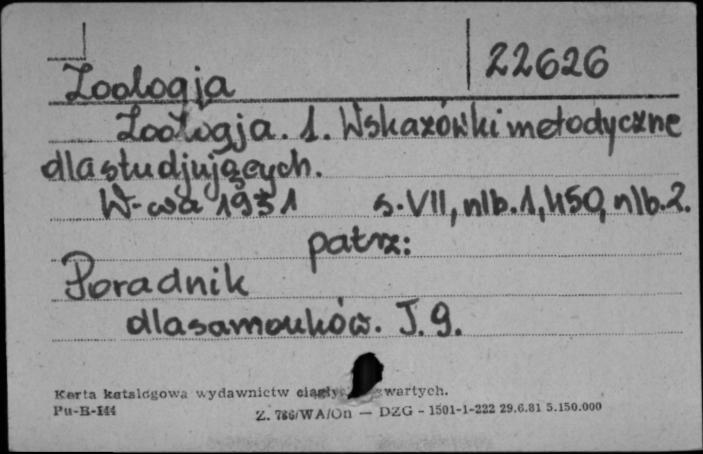 22626
Zoologja
Zoologja. 1. Wskazówki metodyczne
dla studjujących.
W-wa 1931 s. VII, nlb. 1, 450, nlb. 2.
patrz:
Poradnik
dla samouków. T. 9.
Karta katalogowa wydawnictw wartych.
Pu-B-144
Z. 786/WA/On — DZG - 1501-1-222 29.6.81 5.150.000